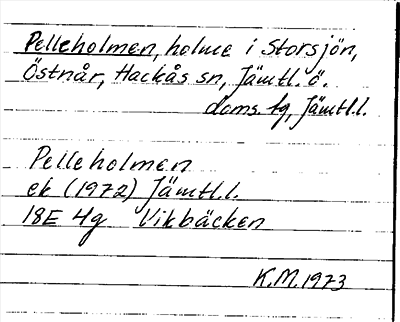 Pelleholmen, holme i Storsjön,
Östnår, Hackås sn, Jämtl. ö.
doms. tg, Jämtl.l.
Pelleholmen
ek (1972) Jämtl.l.
18E 4g Vikbäcken
K.M. 1973